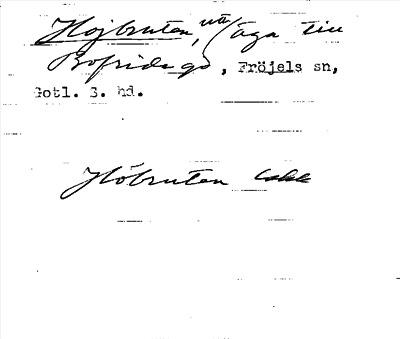 Hojbruten, nä/äga till
Bofride gd, Fröjels sn,
Gotl. S. hd.
Höbruten